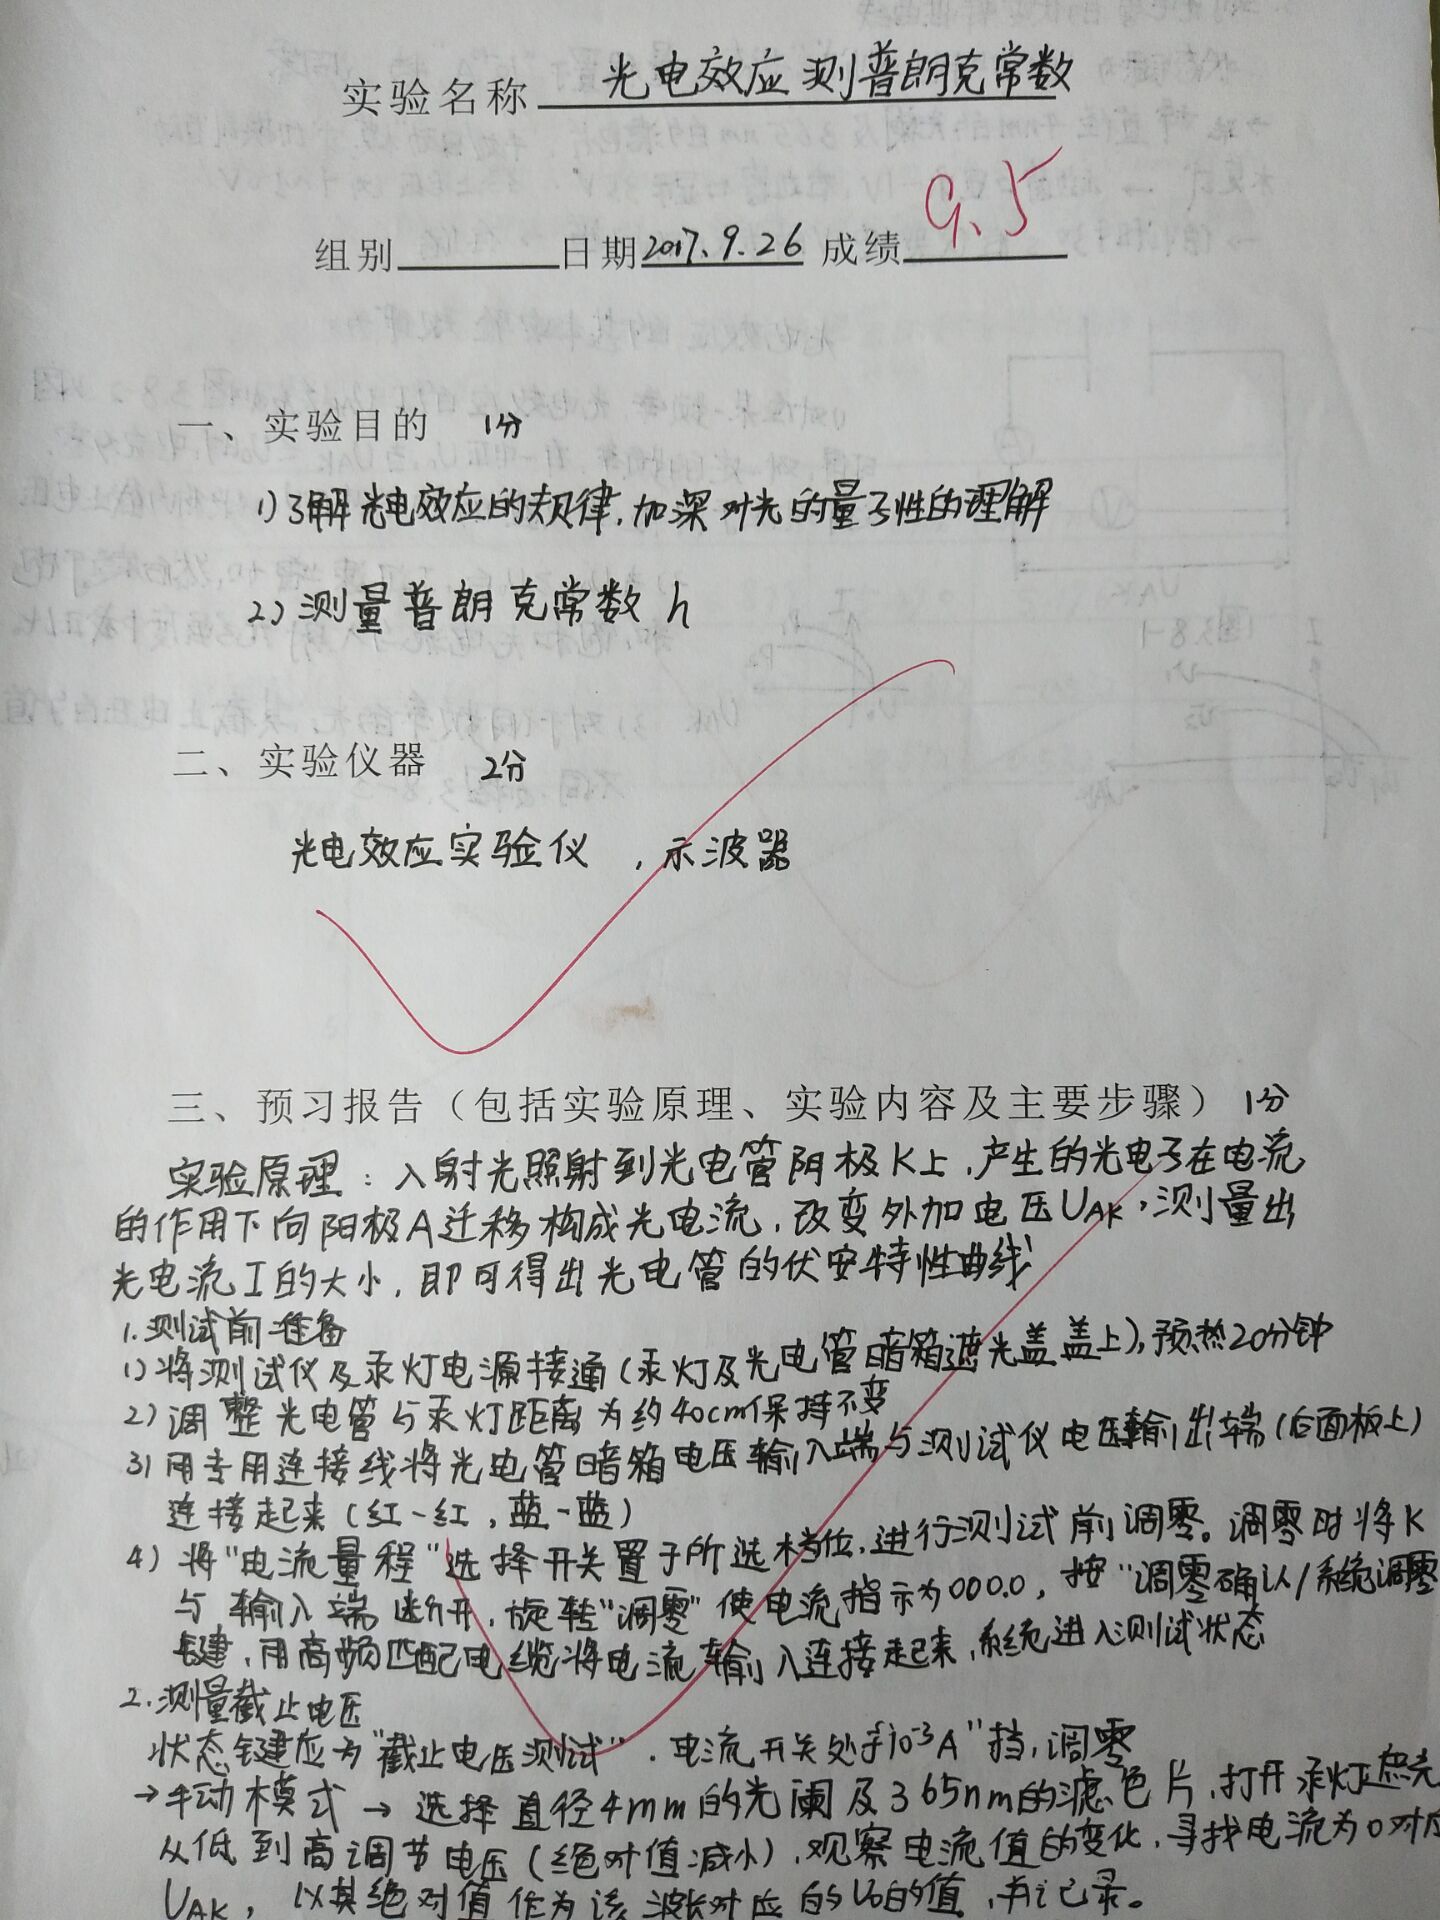 实验名称 光电效应测普朗克常数
组别 日期2017.9.26 成绩9.5
一、实验目的 1分
1)了解光电效应的规律,加深对光的量子性的理解
2)测量普朗克常数h
二、实验仪器 2分
光电效应实验仪 ,示波器
三、预习报告（包括实验原理、实验内容及主要步骤） 1分
实验原理：入射光照射到光电管阴极K上,产生的光电子在电流
的作用下向阳极A迁移构成光电流,改变外加电压UAK,测量出
光电流I的大小,即可得出光电管的伏安特性曲线
1.测试前准备
1)将测试仪及汞灯电源接通(汞灯及光电管暗箱遮光盖盖上),预热20分钟
2)调整光电管与汞灯距离为约40cm保持不变
3)用专用连接线将光电管暗箱电压输入端与测试仪电压输出端(后面板上)
连接起来(红-红,蓝-蓝)
4)将"电流量程"选择开关置于所选档位,进行测试前调零。调零时将K
与输入端断开,旋转"调零"使电流指示为000.0,按"调零确认/系统调零
键,用高频匹配电缆将电流输入连接起来,系统进入测试状态
2.测量截止电压
状态键应为"截止电压测试".电流开关处于"10-3A"挡,调零
→手动模式→选择直径4mm的光阑及365nm的滤色片,打开汞灯遮光
从低到高调节电压(绝对值减小),观察电流值的变化,寻找电流为0对应
UAK,以其绝对值作为该波长对应的U0的值,并记录。